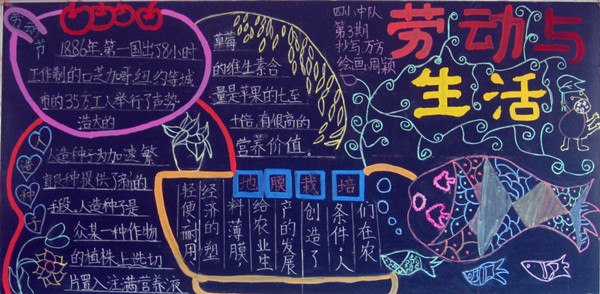 劳动
节
1886年第一国出了8小时
工作制的口芝加哥纽约等城
市的35万工人举行了声势
浩大的
草莓
的维生素合
量是苹果的七至
十倍,有很高的
营养价值。
四小中队
第3期
抄写:万万
绘画:周颖
劳动与
生活
人造种子为加速繁
育品种提供了新的
手段。人造种子是
众某一种作物
的植株上选切
片置入注满营养液
地膜栽培
轻便耐用
经济的塑
料薄膜
给农业生
产的发展
创造了
条件。人
们在农